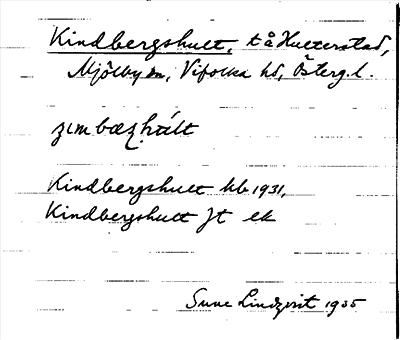 Kindbergshult, t å Hulterstad,
Mjölby sn, Vifolka hd, Österg. l.
Kindbergshult kb 1931,
Kindbergshult Jt ek
Sune Lindqvist 1935